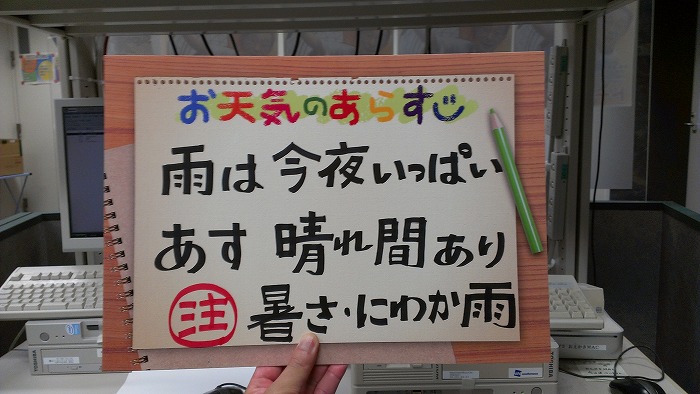 お天気のあらすじ
雨は今夜いっぱい
あす 晴れ間あり
注 暑さ・にわか雨
TOSHIBA